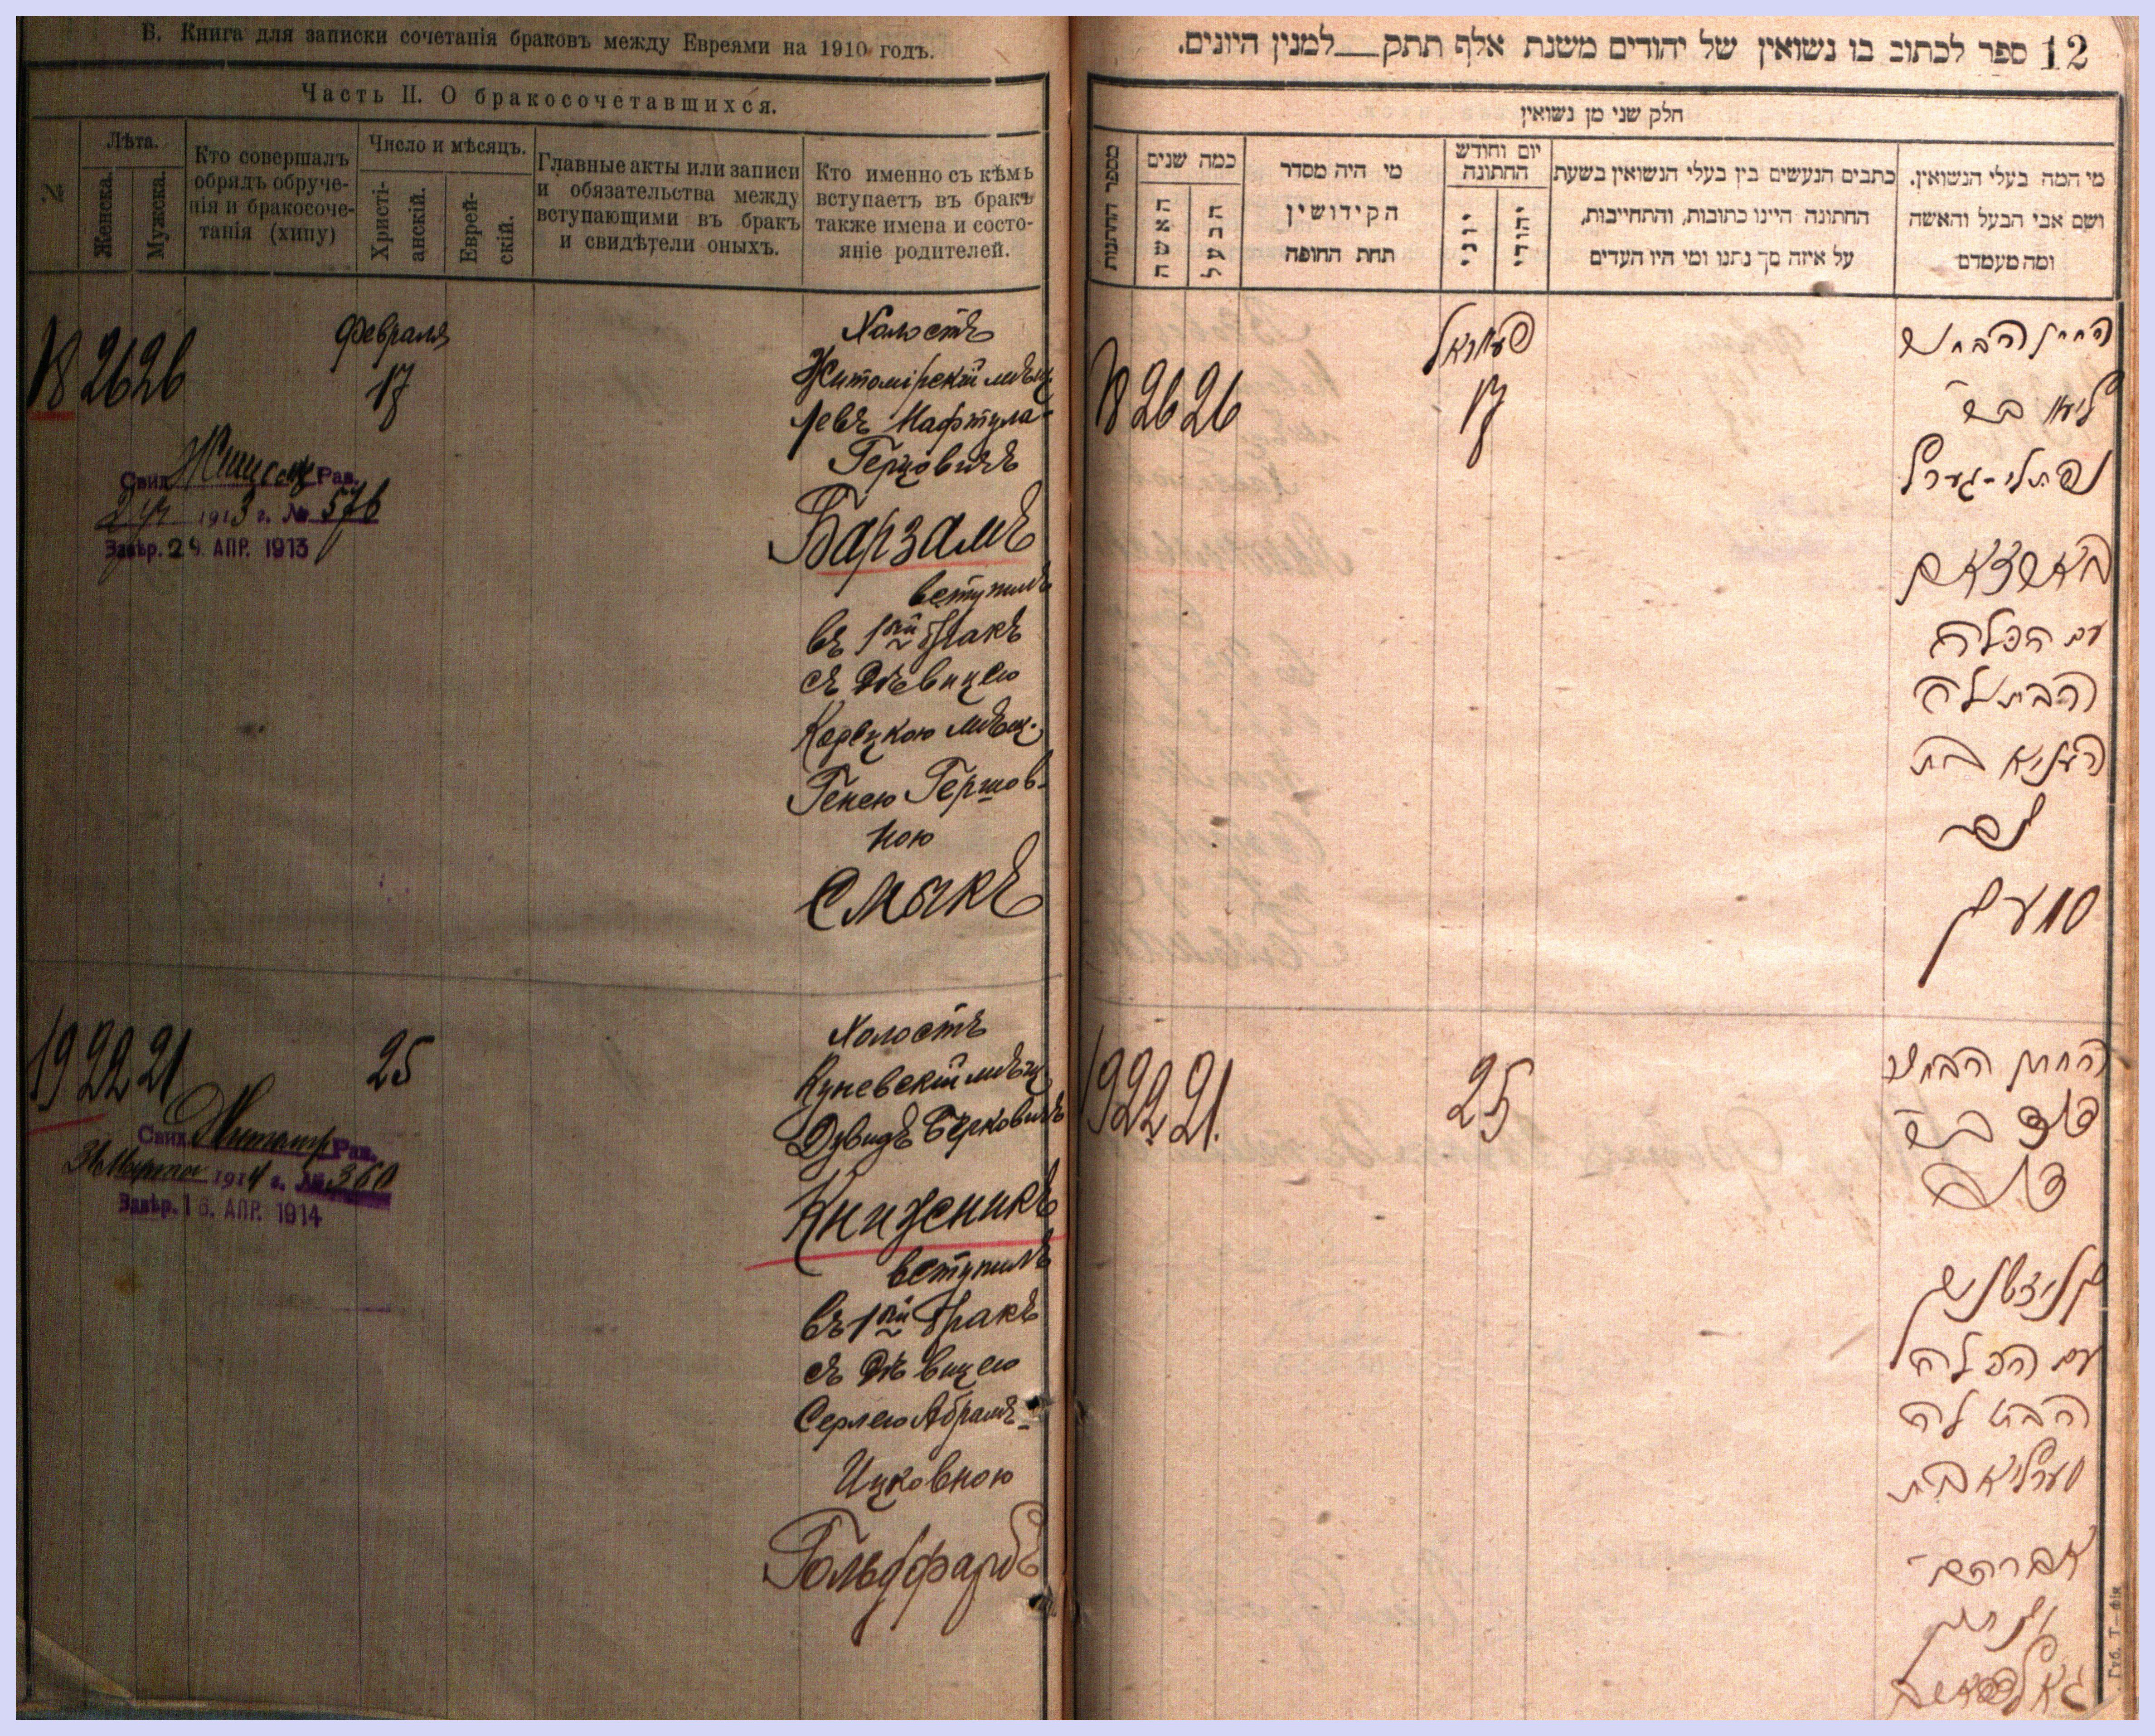 Б. Книга для записки сочетанія браковъ между Евреями на 1910 годъ.
Часть II. О бракосочетавшихся.
№
Лѣта.
Женска.
Мужска.
Кто совершалъ
обрядъ обруче-
нія и бракосоче-
танія (хипу)
Число и мѣсяцъ.
Христі-
анскій.
Еврей-
скій.
Главные акты или записи
и обязательства между
вступающими въ бракъ
и свидѣтели оныхъ.
Кто именно съ кѣмъ
вступаетъ въ бракъ
также имена и состо-
яніе родителей.
18 26 26
Февраля
17
Холостъ
Житомірскій мѣщ.
Левъ Нафтула-
Герцовичъ
Барзамъ
вступилъ
въ 1ый бракъ
съ дѣвицею
Корецкою мѣщ.
Генею Гершов-
ною
Смыкъ
Свид. Рав.
1913 г. № 576
Завѣр. 29. АПР. 1913
19 22 21
25
Холостъ
Куневскій мѣщ.
Дувидъ Берковичъ
Книжникъ
вступилъ
въ 1ый бракъ
съ дѣвицею
Серлею Абрамъ-
Ицковною
Гольдфарбъ
Свид. Житомір Рав.
Марта 1914 г. № 360
Завѣр. 16. АПР. 1914
12 ספר לכתוב בו נשואין של יהודים משנת אלף תתק__למנין היונים.
חלק שני מן נשואין
מי המה בעלי הנשואין.
ושם אבי הבעל והאשה
ומה מעמדם
כתבים הנעשים בין בעלי הנשואין בשעת
החתונה היינו כתובות, והתחייבות,
על איזה סך נתנו ומי היו העדים
יום וחודש
החתונה
יהודי
יוני
מי היה מסדר
הקידושין
תחת החופה
כמה שנים
הבעל
האשה
מספר החתונות
18 26 26
פעווראל
17
החתן הבחור
ליב ב״ר
נפתלי-הערץ
בארזאם
עם הכלה
הבתולה
העניא בת
סמיק
19 22 21.
25
החתן הבחור
דוד ב״ר
דוב
קניזשניק
עם הכלה
הבתולה
סערליא בת
אברהם
יצחק
גאלדפארב
Губ. Т—фія